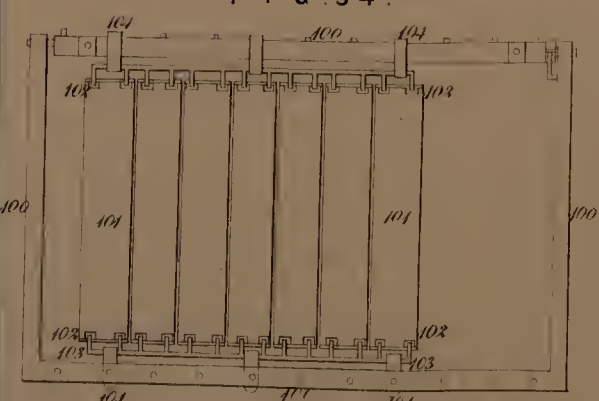 FIG. 34.
104 100 104
102 102
100 100
101 101
102 102
103 103
104 104